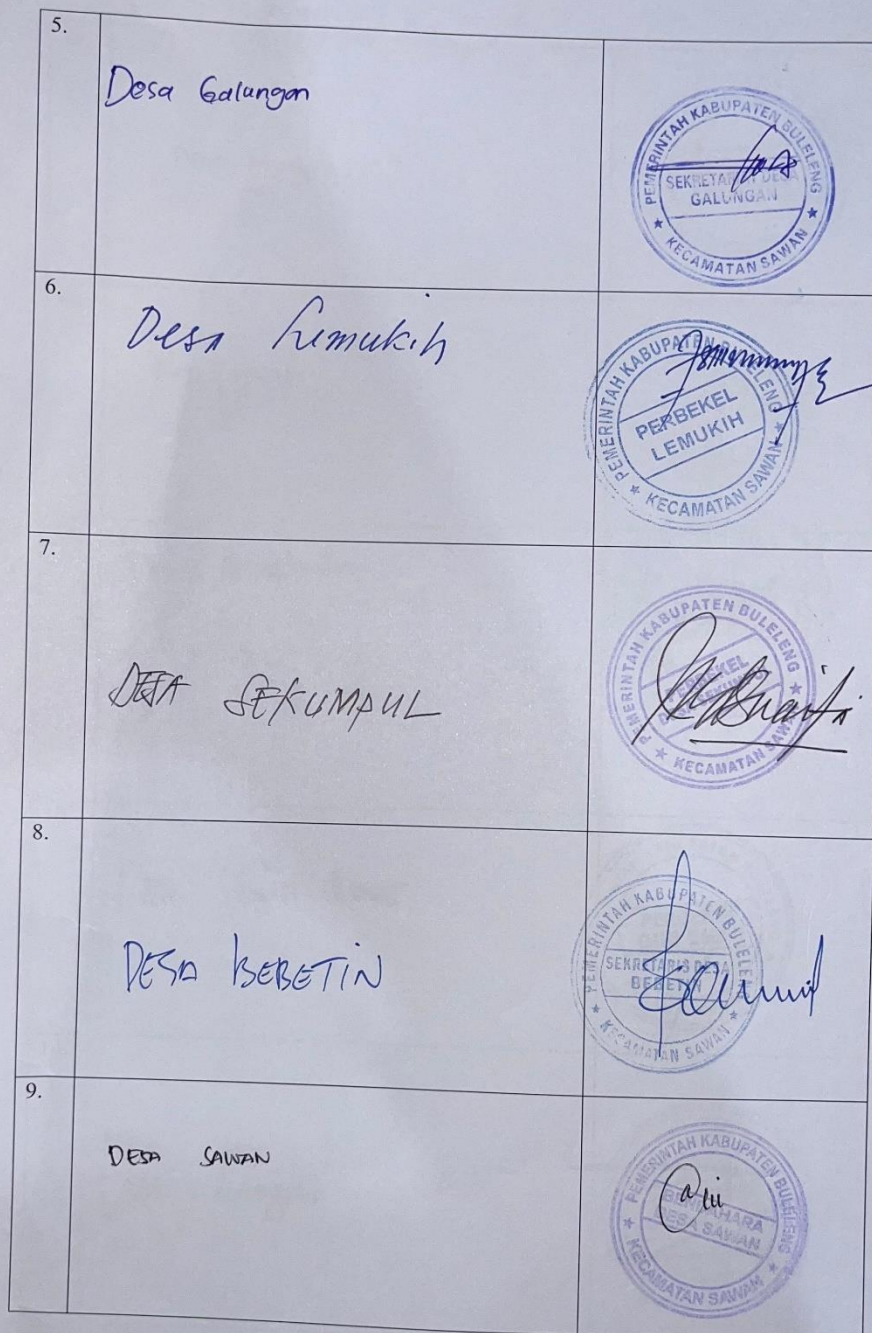 5.
Desa Galungan
PEMERINTAH KABUPATEN BULELENG
SEKRETARIS DESA
GALUNGAN
★ KECAMATAN SAWAN ★
6.
Desa Lemukih
PEMERINTAH KABUPATEN BULELENG
PERBEKEL
LEMUKIH
★ KECAMATAN SAWAN ★
7.
DESA SEKUMPUL
PEMERINTAH KABUPATEN BULELENG
PERBEKEL
DESA SEKUMPUL
★ KECAMATAN SAWAN ★
8.
DESA BEBETIN
PEMERINTAH KABUPATEN BULELENG
SEKRETARIS DESA
BEBETIN
★ KECAMATAN SAWAN ★
9.
DESA SAWAN
PEMERINTAH KABUPATEN BULELENG
BENDAHARA
DESA SAWAN
★ KECAMATAN SAWAN ★